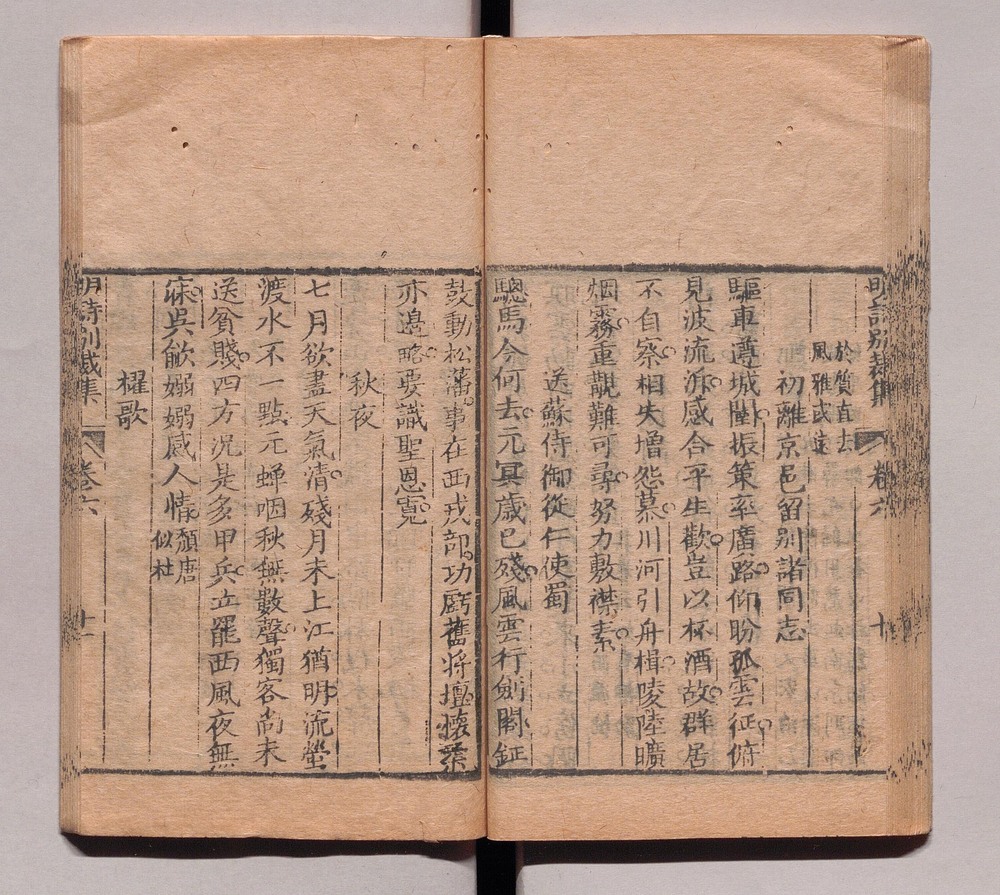 明詩別裁集 卷六 十
於質直去
風雅或遠
初離京邑留別諸同志
驅車遵城闉振策率廣路仰盼孤雲征俯
見波流泝感合平生歡豈以杯酒故群居
不自察相失增怨慕川河引舟楫陵陸曠
烟霧重覯難可尋努力敷襟素
送蘇侍御從仁使蜀
驄馬今何去元冥歲已殘風雲行劍閣鉦
鼓動松藩事在西戎部功歸舊將壇懷柔
亦邊略要識聖恩寬
秋夜
七月欲盡天氣清殘月未上江猶明流螢
渡水不一點元蟬咽秋無數聲獨客尚未
送貧賤四方況是多甲兵立罷西風夜無
寐吳歈嫋嫋感人情
頹唐
似杜
櫂歌
明詩別裁集 卷六 十一